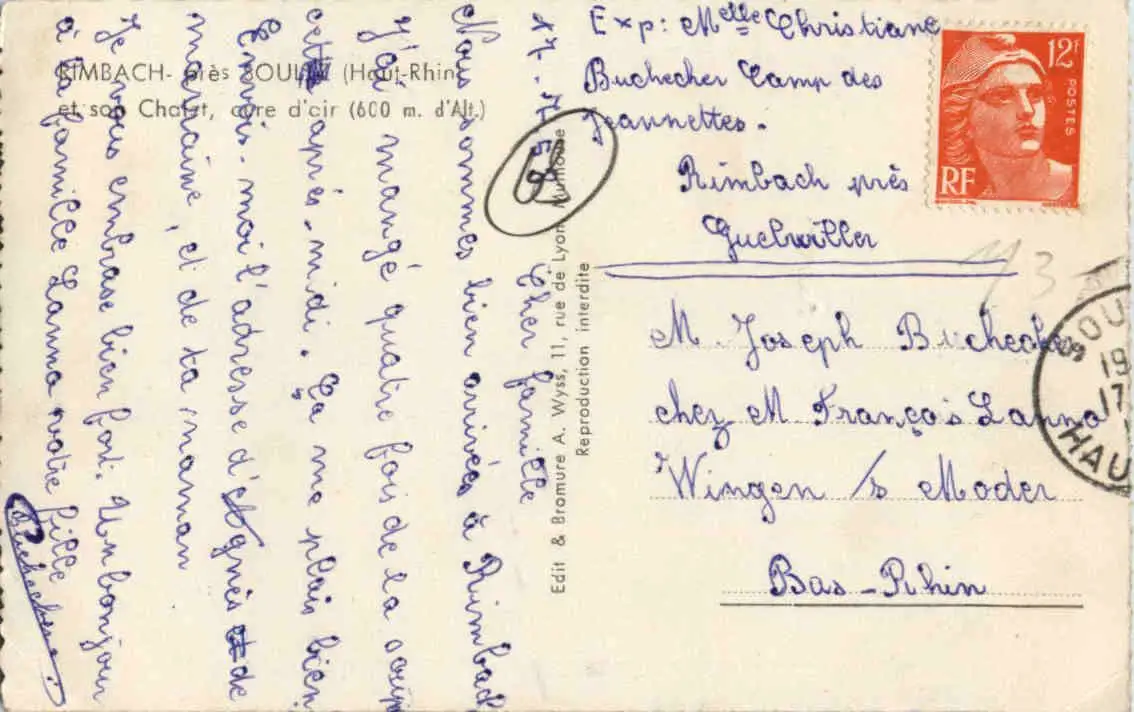 RIMBACH - près SOULTZ (Haut-Rhin)
et son Chalet, cure d'air (600 m. d'Alt.)
Cher famille
Nous sommes bien arrivées à Rimbach
J'ai mangé quatre fois de la soupe
cette après-midi. Ça me plais bien
Envois-moi l'adresse d'Agnès de
marraine, et de ta maman
Je vous embrase bien fort. Un bonjour
à la famille Lanno votre fille
Edit & Bromure A. Wyss, 11, rue de Lyon, Mulhouse
Reproduction interdite
Exp: Melle Christiane
Buchecher Camp des
Jeannettes.
Rimbach près
Guebwiller
M. Joseph Buchecher
chez M. François Lanno
Wingen s/ Moder
Bas-Rhin
12F
POSTES
RF
SOU
19
17
HAU